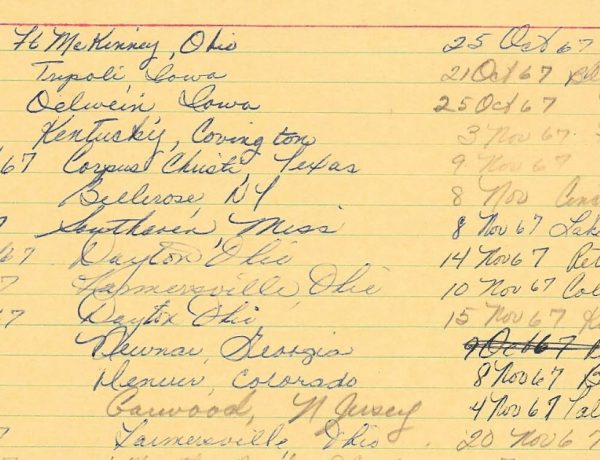 Ft McKinney, Ohio 25 Oct 67
Tripoli, Iowa 21 Oct 67
Oelwein, Iowa 25 Oct 67
Kentusky, Covington 3 Nov 67
67 Corpus Christi, Texas 9 Nov 67
Bellerose, NY 8 Nov
7 Southaven, Miss 8 Nov 67 Lak
67 Dayton, Ohio 14 Nov 67
7 Farmersville, Ohio 10 Nov 67 Col
67 Dayton Ohio 15 Nov 67
Newnan, Georgia 9 Oct 67
Denver, Colorado 8 Nov 67 B
Garwood, N Jersey 4 Nov 67
7 Farmersville, Ohio 20 Nov 67